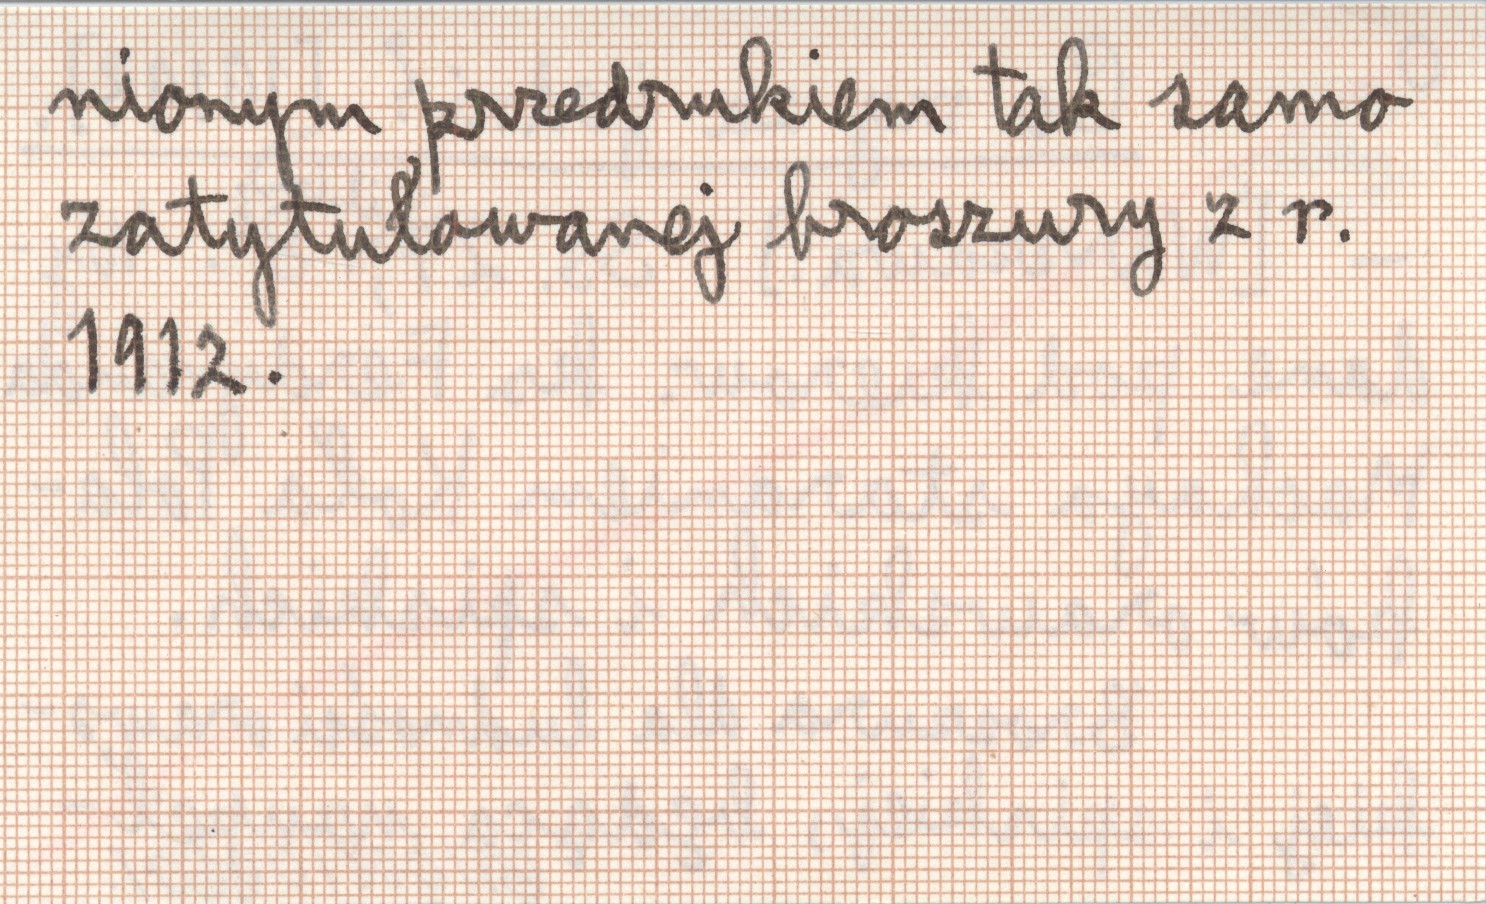 nionym przedrukiem tak samo
zatytułowanej broszury z r.
1912.